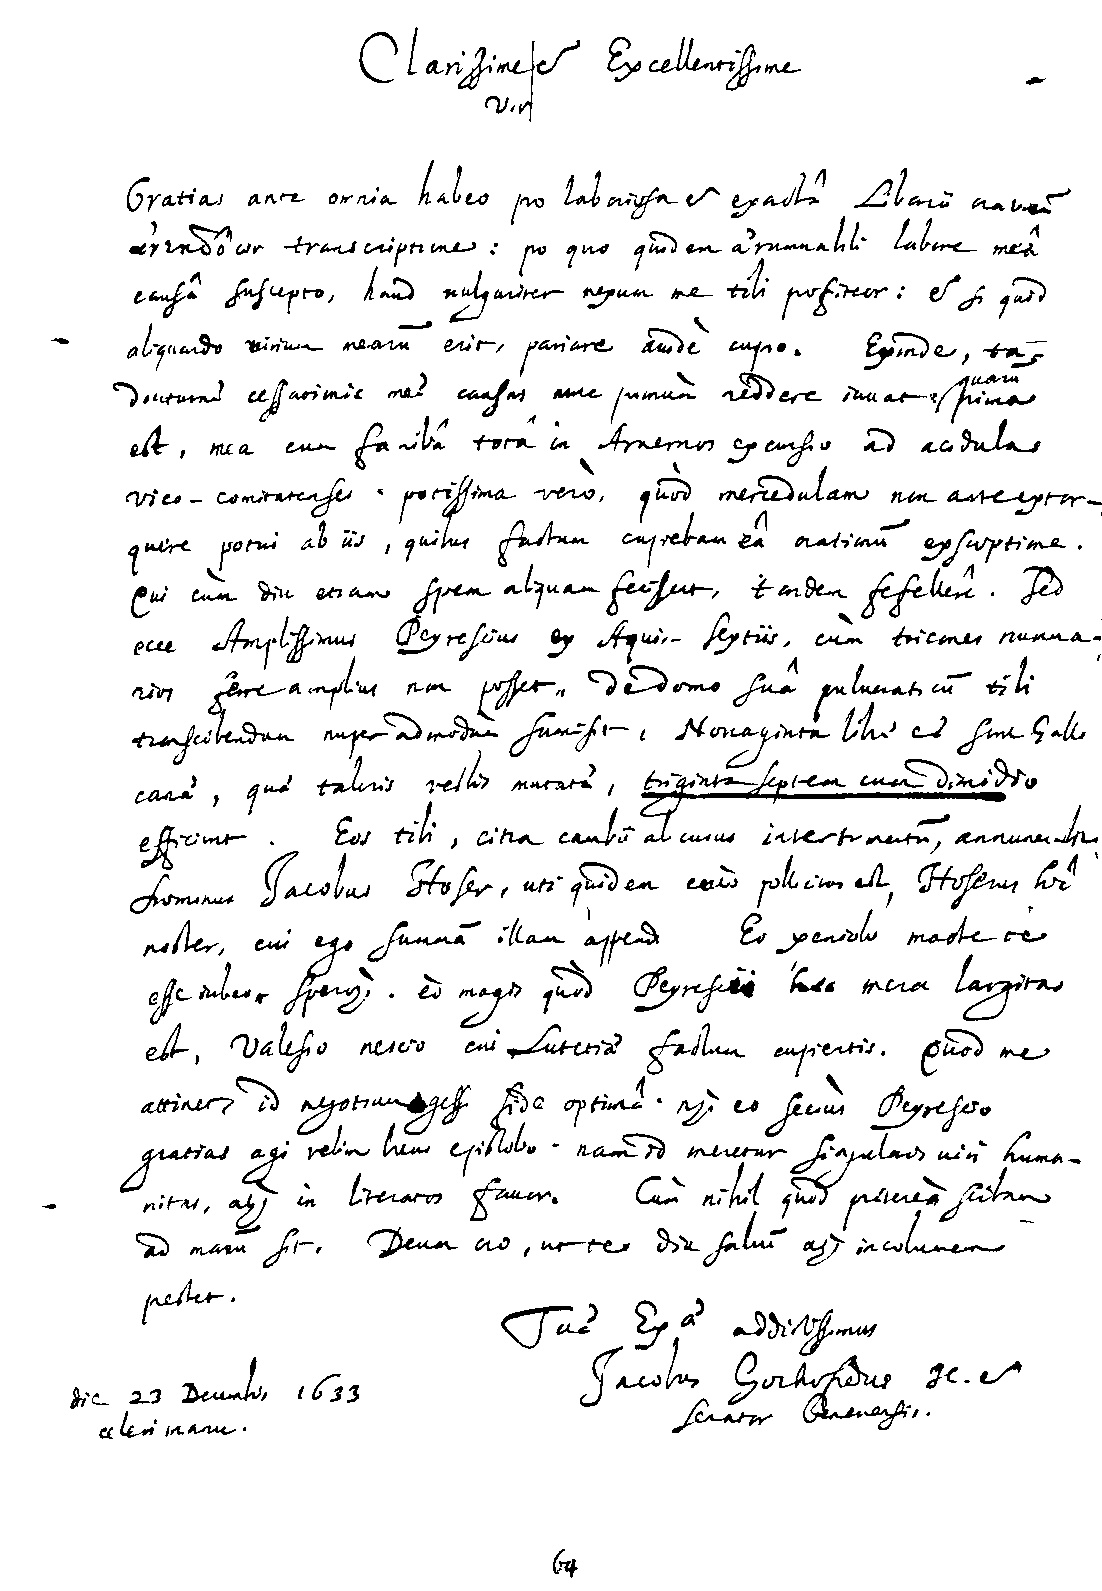 Clarissime & Excellentissime
Vir
Gratias ante omnia habeo pro laboriosa & exactâ Libanii
transcriptione: pro quo quidem ærumnabili labore meâ
causâ suscepto, haud vulgariter nexum me tibi profiteor: & si quid
aliquando virium mearũ erit, pariare cupio. Exinde,
diuturnæ cessationis meæ causas nunc primùm reddere iuvat quarũ prima
est, mea cum familiâ totâ in Arvernos excursio ad acidulas
vico-comitatenses. potissima verò, quòd mercedulam non ante extor-
quere potui ab iis, quibus factum cupiebam eâ orationũ exscriptione.
Qui cùm diu etiam spem aliquam fecissent, tandem fefellerũt. Sed
ecce Amplissimus Peyrescius ex Aquis-Sextiis, cùm tricones numma-
rios ferre amplius non posset, de domo suâ pulveraticũ tibi
transcribendum nuper admodùm submisit, Nonaginta libræ eæ sunt Galli
canæ, quæ taleris vestris mutatæ, triginta septem cum dimidio
efficiunt. Eos tibi, citra cambii alicuius intertrimentũ, annumerabit
Dominus Jacobus Hoser, uti quidem pollicitus est, Hoserus hîc
noster, cui ego summã illam appendi Eo xeniolo macte te
esse iubeo, spero. eò magis quòd Peyrescii hæc mera largitas
est, Valesio nescio cui Lutetiæ factum cupientis. Quod me
attinet, id negotium gessi fide optimâ. eo seciùs Peyrescio
gratias agi velim brevi epistolio. nam id meretur singularis viri huma-
nitas, atq; in literatos favor. Cùm nihil quod prætereà scribam
ad manũ sit. Deum oro, ut te diu salvũ atq; incolumem
præstet.
Tuæ Exæ addictissimus
Jacobus Gothofredus JC. &
Senator Genevensis.
die 23 Decembris 1633
celeri manu.
64